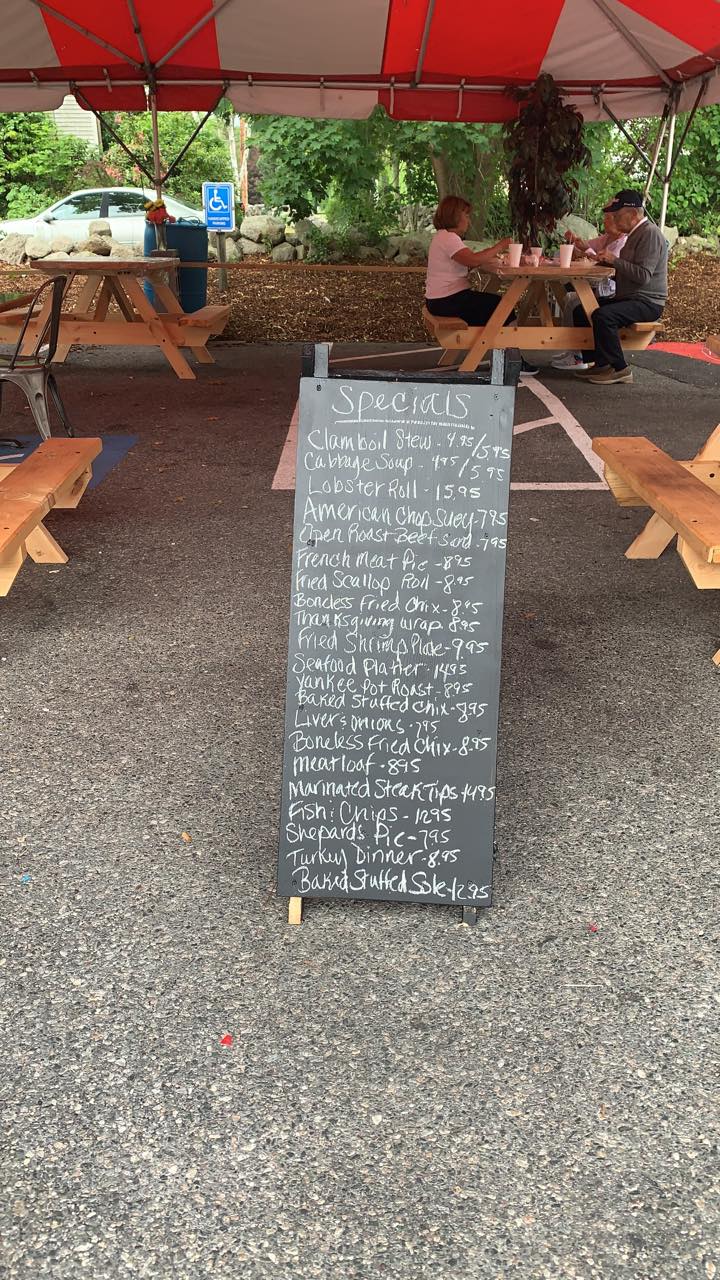 Specials
Clamboil Stew - 4.95/5.95
Cabbage Soup - 4.95/5.95
Lobster Roll - 15.95
American Chop Suey - 7.95
Open Roast Beef Sand. - 7.95
French Meat Pie - 8.95
Fried Scallop Roll - 8.95
Boneless Fried Chix - 8.95
Thanksgiving Wrap. 8.95
Fried Shrimp Plate - 9.95
Seafood Platter - 14.95
Yankee Pot Roast - 8.95
Baked Stuffed Chix - 8.95
Liver & Onions - 7.95
Boneless Fried Chix - 8.95
Meatloaf - 8.95
Marinated Steak Tips - 14.95
Fish & Chips - 12.95
Shepards Pie - 7.95
Turkey Dinner - 8.95
Baked Stuffed Sole - 12.95